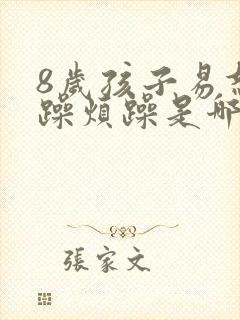 8歲孩子易
躁煩躁是哪
張家文